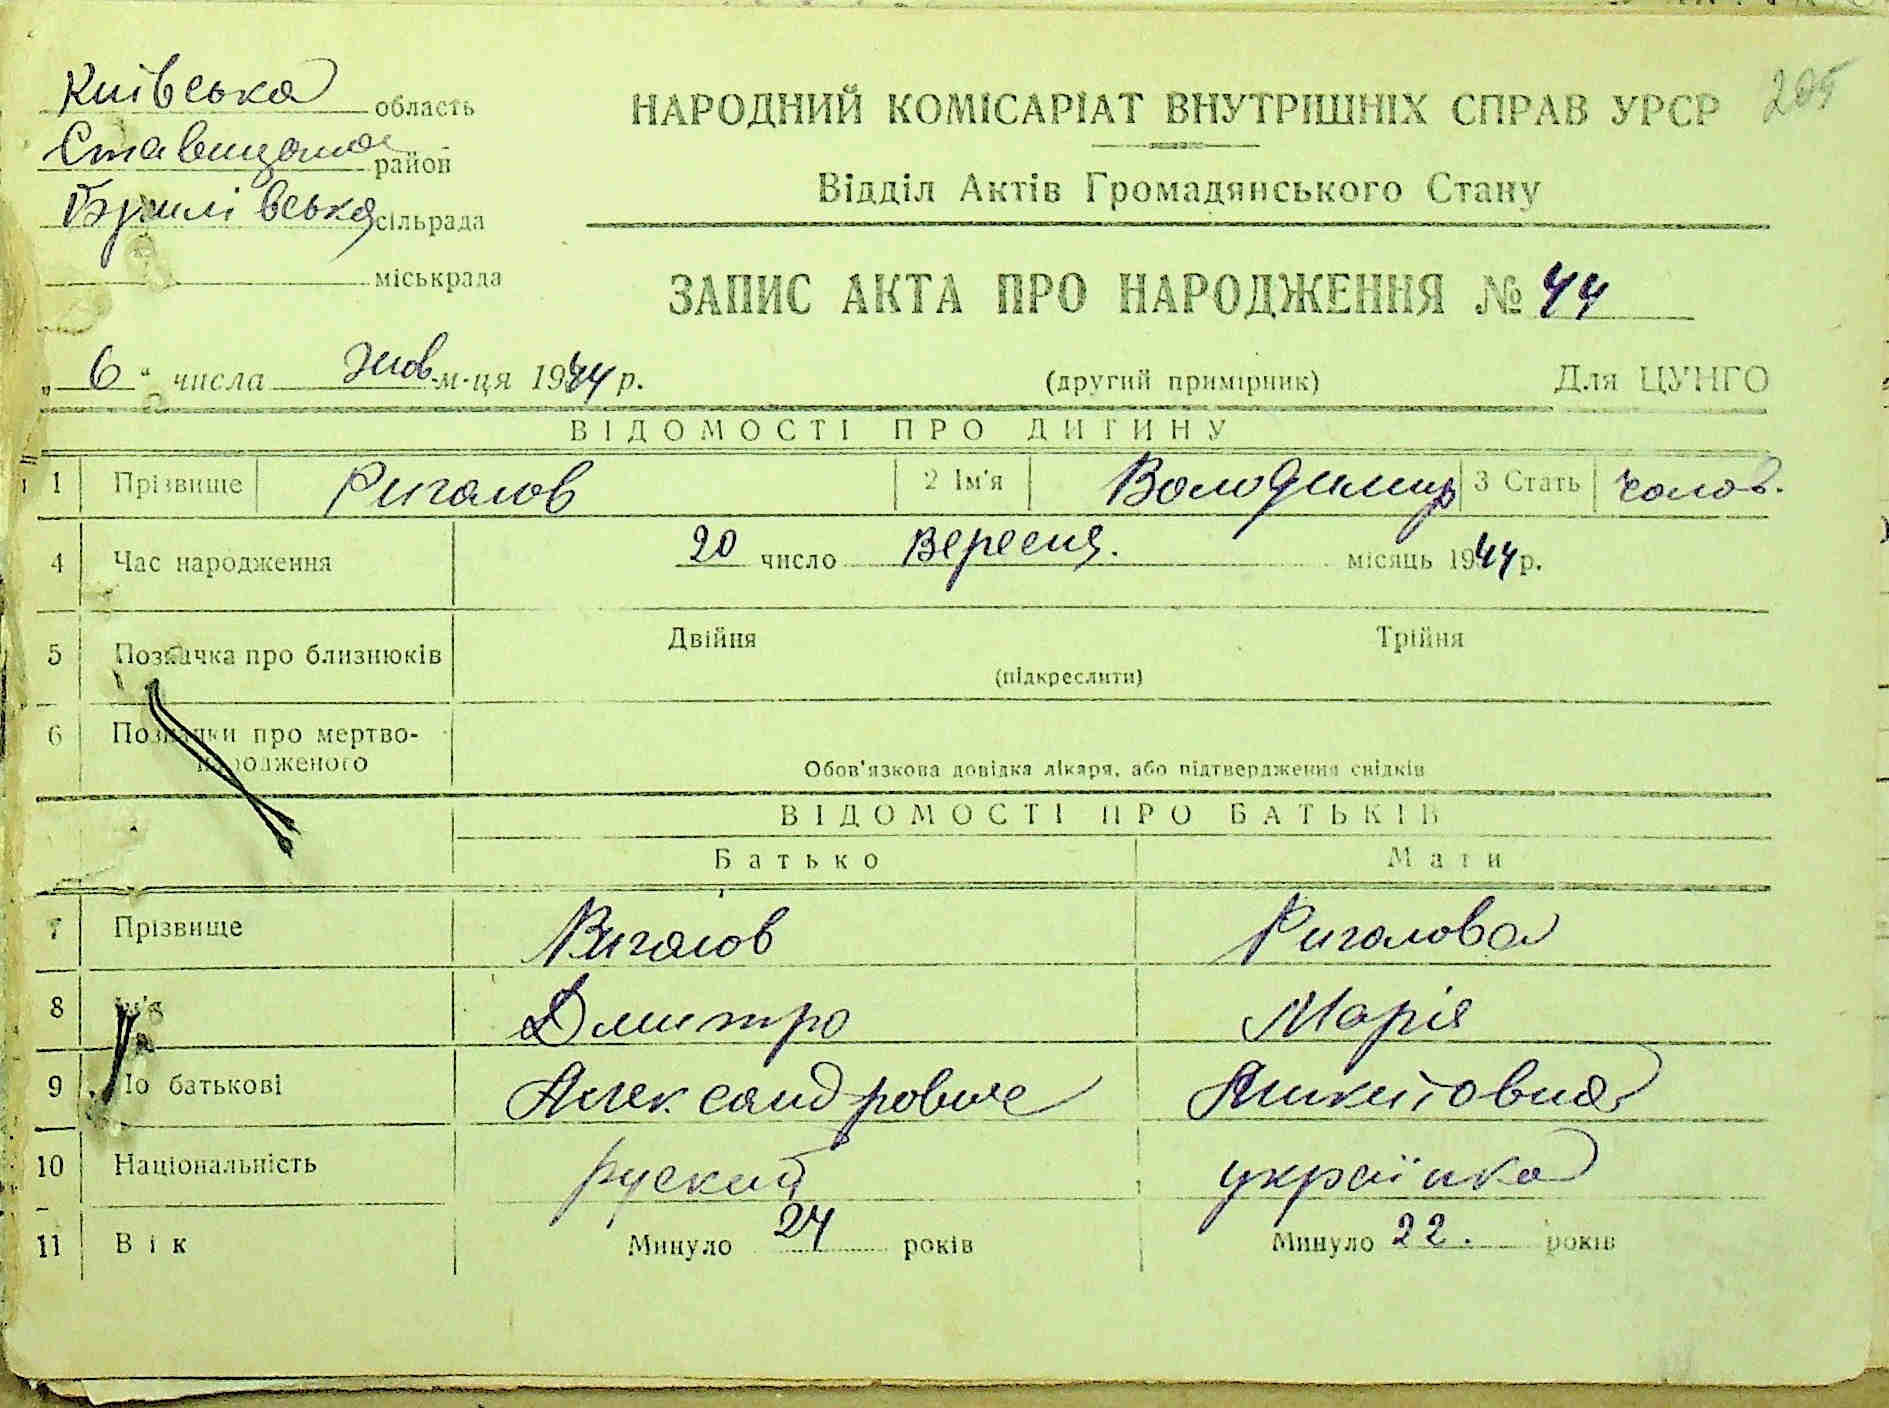 205
Київська область
НАРОДНИЙ КОМІСАРІАТ ВНУТРІШНІХ СПРАВ УРСР
район
Відділ Актів Громадянського Стану
сільрада
міськрада
ЗАПИС АКТА ПРО НАРОДЖЕННЯ № 44
„ 6 “ числа Жов. м-ця 1944 р. (другий примірник) Для ЦУНГО
ВІДОМОСТІ ПРО ДИТИНУ
1 Прізвище Ригалов 2 Ім'я Володимир 3 Стать чолов.
4 Час народження 20 число Вересня. місяць 1944 р.
5 Позначка про близнюків Двійня Трійня
(підкреслити)
6 Позначки про мертво-
народженого Обов'язкова довідка лікаря, або підтвердження свідків
ВІДОМОСТІ ПРО БАТЬКІВ
Батько Мати
7 Прізвище Ригалов Ригалова
8 Ім'я Дмитро Марія
9 По батькові Александрович Никитовна
10 Національність руский українка
11 Вік Минуло 24 років Минуло 22. років